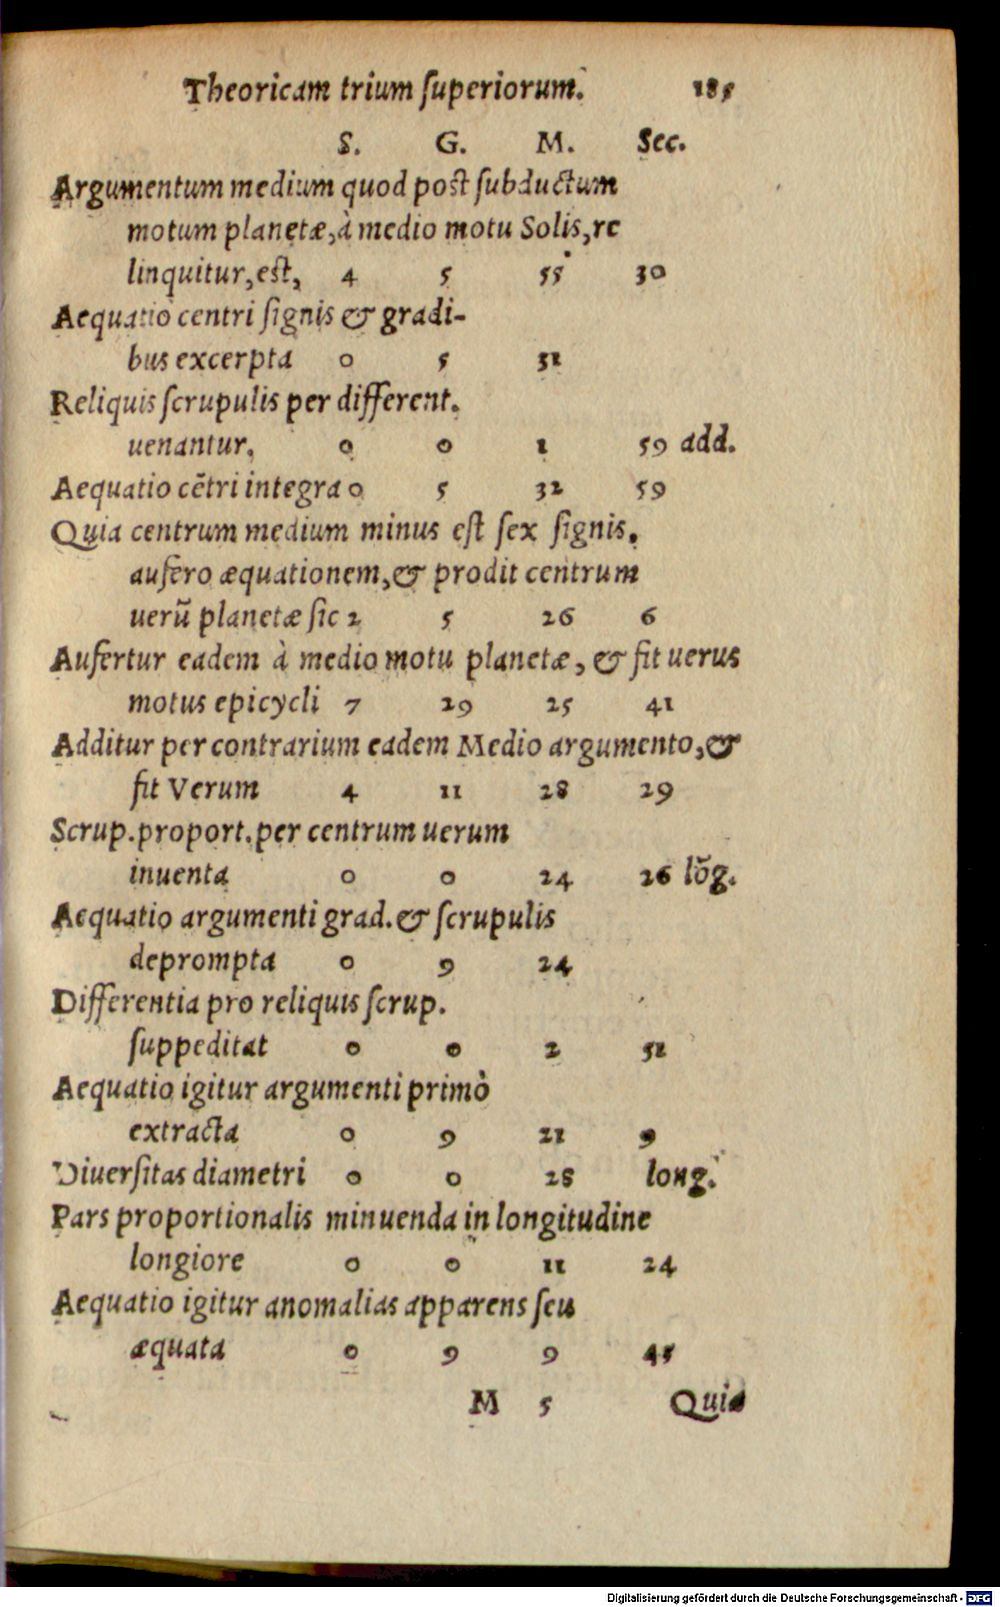 Theoricam trium ſuperiorum. 185
S. G. M. Sec.
Argumentum medium quod poſt ſubductum
motum planetæ, à medio motu Solis, re
linquitur, eſt, 4 5 55 30
Aequatio centri ſignis & gradi-
bus excerpta 0 5 31
Reliquis ſcrupulis per different.
uenantur. 0 0 1 59 add.
Aequatio cẽtri integra 0 5 32 59
Quia centrum medium minus eſt ſex ſignis.
aufero æquationem, & prodit centrum
uerũ planetæ ſic 2 5 26 6
Aufertur eadem à medio motu planetæ, & fit uerus
motus epicycli 7 29 25 41
Additur per contrarium eadem Medio argumento, &
fit Verum 4 11 28 29
Scrup. proport. per centrum uerum
inuenta 0 0 24 26 lõg.
Aequatio argumenti grad. & ſcrupulis
deprompta 0 9 24
Differentia pro reliquis ſcrup.
ſuppeditat 0 0 2 51
Aequatio igitur argumenti primò
extracta 0 9 21 9
Diuerſitas diametri 0 0 28 long.
Pars proportionalis minuenda in longitudine
longiore 0 0 11 24
Aequatio igitur anomalias apparens ſeu
æquata 0 9 9 45
M 5 Quia
Digitalisierung gefördert durch die Deutsche Forschungsgemeinschaft - DFG